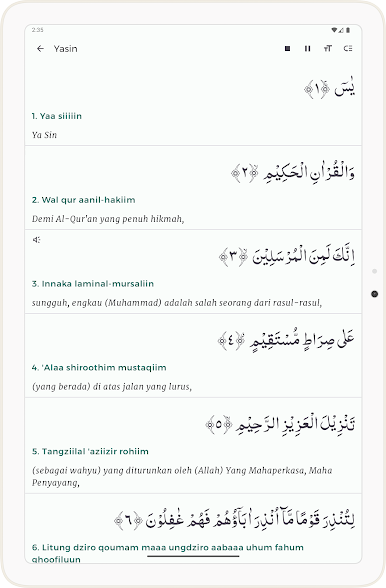 2:35
Yasin
يٰسۤ ۝١
1. Yaa siiiiin
Ya Sin
وَالْقُرْاٰنِ الْحَكِيْمِ ۝٢
2. Wal qur aanil-hakiim
Demi Al-Qur'an yang penuh hikmah,
اِنَّكَ لَمِنَ الْمُرْسَلِيْنَ ۝٣
3. Innaka laminal-mursaliin
sungguh, engkau (Muhammad) adalah salah seorang dari rasul-rasul,
عَلٰى صِرَاطٍ مُّسْتَقِيْمٍ ۝٤
4. 'Alaa shiroothim mustaqiim
(yang berada) di atas jalan yang lurus,
تَنْزِيْلَ الْعَزِيْزِ الرَّحِيْمِ ۝٥
5. Tangziilal 'aziizir rohiim
(sebagai wahyu) yang diturunkan oleh (Allah) Yang Mahaperkasa, Maha
Penyayang,
لِتُنْذِرَ قَوْمًا مَّآ اُنْذِرَ اٰبَاۤؤُهُمْ فَهُمْ غٰفِلُوْنَ ۝٦
6. Litung dziro qoumam maaa ungdziro aabaaa uhum fahum
ghoofiluun